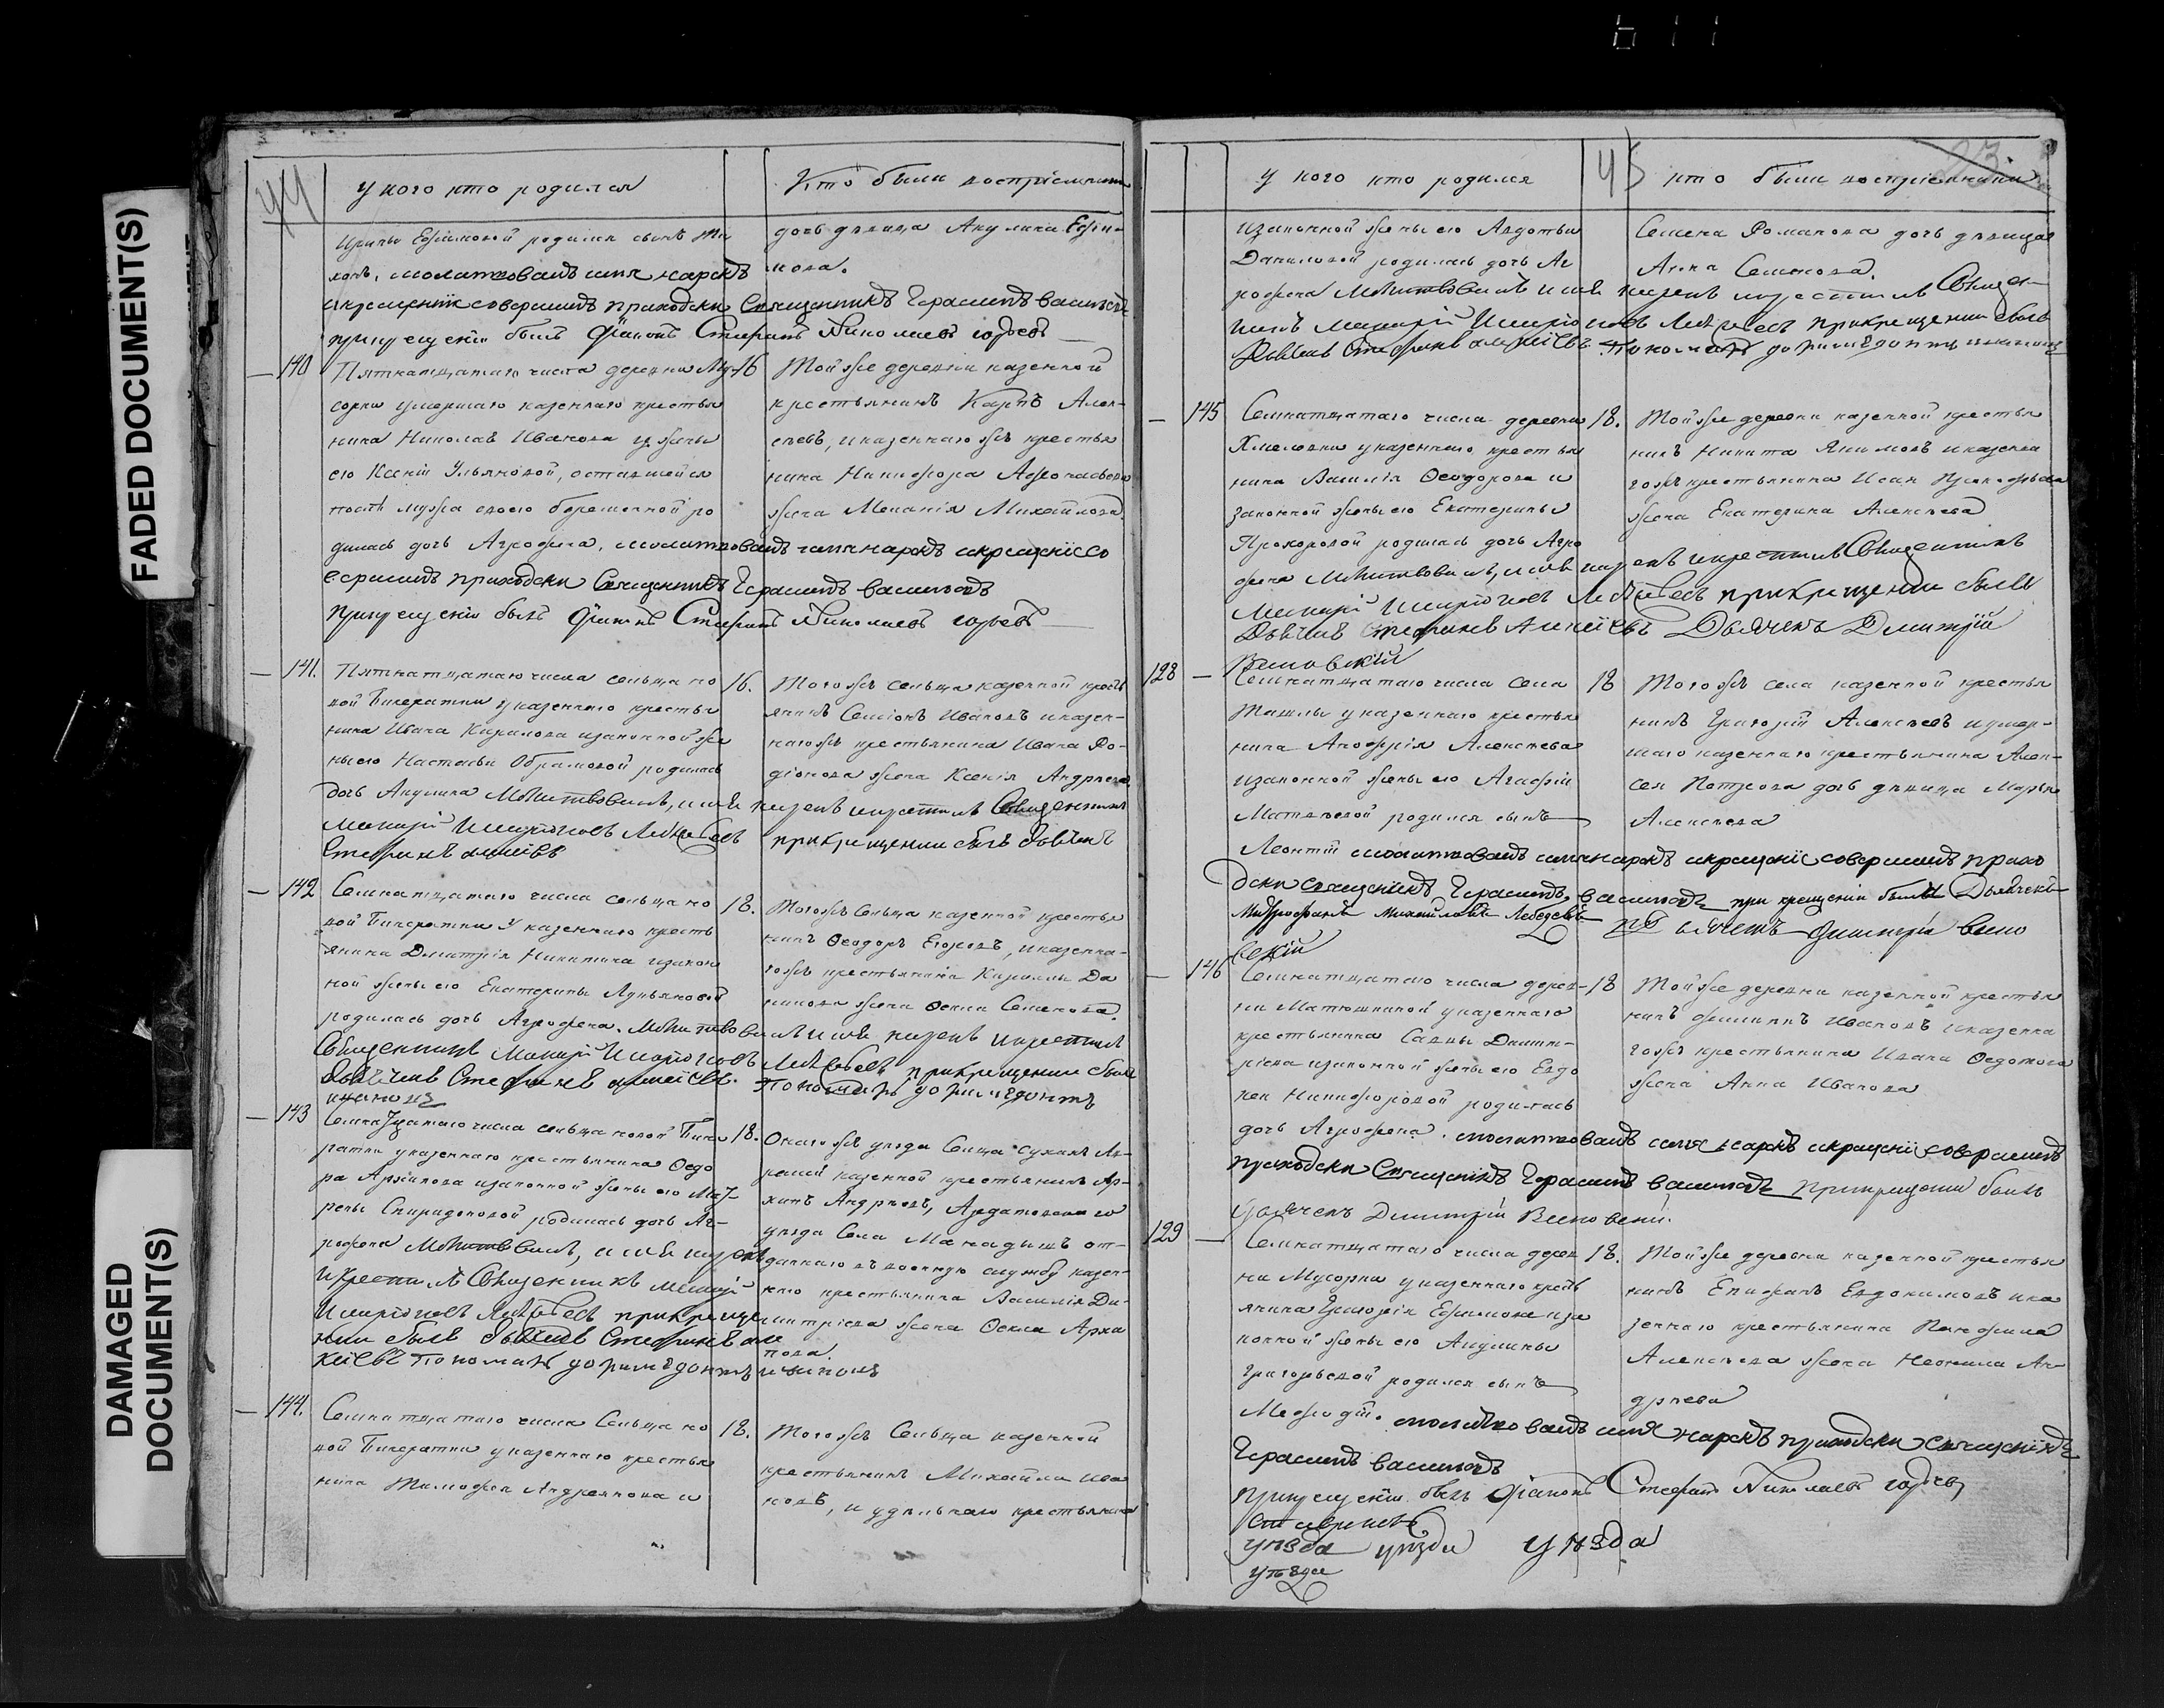 FADED DOCUMENT(S)
DAMAGED
DOCUMENT(S)
44
у кого кто родился
Кто были воспріемники
Ирины Ефимовой родился сынъ Ти
хонъ, молитвовалъ имя нарекъ
и крещеніе совершилъ приходски Священникъ Герасимъ Васильевъ
при крещеніи былъ Діаконъ Стефанъ Николаевъ
дочь девица Акулина Ефи-
мова.
140
Пятнатцатаго числа деревни Му-
сорки умершаго казеннаго крестья
нина Николая Иванова у жены
его Ксеніи Ульяновой, оставшейся
послѣ мужа своего беременной ро
дилась дочь Агрофена, молитвовалъ имя нарекъ и крещеніе со
вершилъ приходски Священникъ Герасимъ Васильевъ
при крещеніи былъ Діаконъ Стефанъ Николаевъ
16
Тойже деревни казенной
крестьянинъ Карпъ Алек-
сѣевъ, и казеннаго жъ крестья
нина Никифора Афонасьева
жена Меланія Михайлова
141.
Пятнатцатаго числа сельца но
вой Бинератки у казеннаго крестья
нина Ивана Кирилова и законной же
ны его Настасьи Обрамовой родилась
дочь Акулина Молитвовалъ, имя нарекъ и крестилъ Священникъ
Макарій Иларіоновъ Лебедевъ при крещеніи былъ Дьячекъ
Стефанъ Алексіевъ
16.
Тогожъ сельца казенной кресть
янинъ Семіонъ Ивановъ и казен-
наго жъ крестьянина Ивана Ро-
діонова жена Ксенія Андреева
142
Семнатцатаго числа сельца но
вой Бинератки у казеннаго кресть
янина Дмитрія Никитина и закон
ной жены его Екатерины Лукьяновой
родилась дочь Агрофена. Молитвовалъ имя нарекъ и крестилъ
Священникъ Макарій Иларіоновъ Лебедевъ при крещеніи были
Дьячекъ Стефанъ Алексіевъ. Пономарь
18.
Тогожъ сельца казенной крестья
нинъ Ѳеодоръ Егоровъ, и казенна-
гожъ крестьянина Кирилы Да
нилова жена Ѳекла Семенова.
143
Семнатцатаго числа сельца новой Бине
ратки у казеннаго крестьянина Ѳедо
ра Архипова и законной жены его Мат
рены Спиридоновой родилась дочь Аг-
рофена Молитвовалъ, имя нарекъ
и крестилъ Священникъ Макарій
Иларіоновъ Лебедевъ при креще
ніи были Дьячекъ Стефанъ Але
ксіевъ Пономарь
18.
Онагожъ уѣзда Сельца Сухихъ Ав-
ралей казенной крестьянинъ Ар-
хипъ Андреевъ, Ардатовскаго
уѣзда Села Манадышъ от-
даннаго въ военную службу казен-
наго крестьянина Василія Ди-
митріева жена Ѳекла Архи
пова.
144.
Семнатцатаго числа Сельца но
вой Бинератки у казеннаго крестья
нина Тимофея Андреянова и
18.
Тогожъ Сельца казенной
крестьянинъ Михайла Ива
новъ, и удѣльнаго крестьянина
45
23
у кого кто родился
кто были воспріемники
изаконной жены его Авдотьи
Даниловой родилась дочь Аг
рофена Молитвовалъ имя нарекъ и крестилъ Священ-
никъ Макарій Иларіоновъ Лебедевъ при крещеніи были
Дьячекъ Стефанъ Алексіевъ Пономарь
Семена Романова дочь девица
Анна Семенова.
145
Семнатцатаго числа деревни
Хмелевки у казеннаго крестья
нина Василія Ѳеодорова и
законной жены его Екатерины
Прохоровой родилась дочь Агро
фена Молитвовалъ, имя нарекъ и крестилъ Священникъ
Макарій Иларіоновъ Лебедевъ при крещеніи были
Дьячекъ Стефанъ Алексіевъ Дьячекъ Дмитрій
18.
Тойже деревни казенной крестья
нинъ Никита Якимовъ и казенна
гожъ крестьянина Исая
жена Екатерина Алексѣева
128
Семнатцатаго числа Села
Ташлы у казеннаго крестья
нина Анофрія Алексѣева
и законной жены его Агафіи
Матвѣевой родился сынъ
Леонтій молитвовалъ имя нарекъ и крещеніе совершилъ прихо
дски Священникъ Герасимъ Васильевъ при крещеніи были Дьячекъ
Митрофанъ Михайловъ Лебедевъ дьячекъ Димитрій
18
Тогожъ села казенной крестья
нинъ Григорій Алексѣевъ и умер-
шаго казеннаго крестьянина Алек-
сея Петрова дочь девица Марья
Алексѣева
146
Семнатцатаго числа дерев-
ни Матюшкиной у казеннаго
крестьянина Савы Димит-
ріева и законной жены его Евдо
кеи Никифоровой родилась
дочь Агрофена. молитвовалъ имя нарекъ и крещеніе совершилъ
приходски Священникъ Герасимъ Васильевъ при крещеніи былъ
дьячекъ Димитрій
18
Тойже деревни казенной крестья
нинъ Филипъ Ивановъ и казенна
гожъ крестьянина Ивана Ѳедотова
жена Анна Иванова
129
Семнатцатаго числа дерев
ни Мусорки у казеннаго кресть
янина Григорія Ефимова и за
конной жены его Акулины
Григорьевой родился сынъ
Мефодій. молитвовалъ имя нарекъ приходски Священникъ
Герасимъ Васильевъ
при крещеніи былъ Діаконъ Стефанъ Николаевъ
18.
Тойже деревни казенной крестья
нинъ Епифанъ Евдокимовъ и ка
зеннаго крестьянина Панфила
Алексѣева жена Неонила Ан-
дреева
уѣзда уѣзда уѣзда
уѣзда